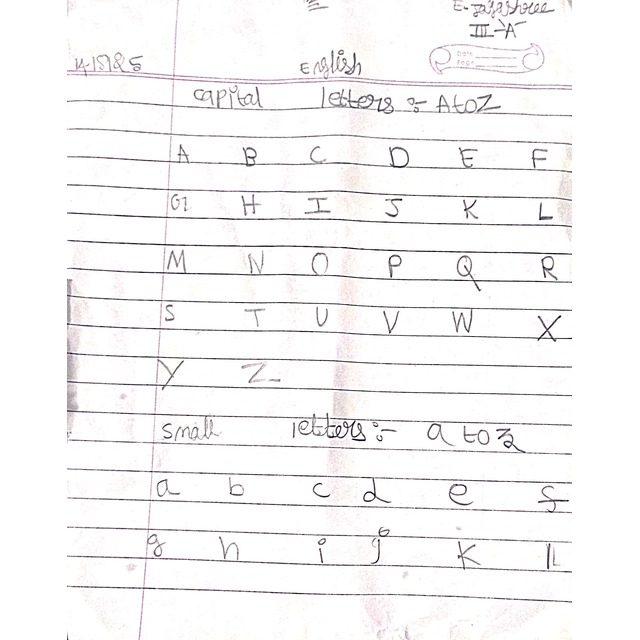 E. Jayashree
III-A
Date
Page
14-15125
English
capital letters :- A to Z
A B C D E F
G H I J K L
M N O P Q R
S T U V W X
Y Z
small letters :- a to z
a b c d e f
g h i j k l